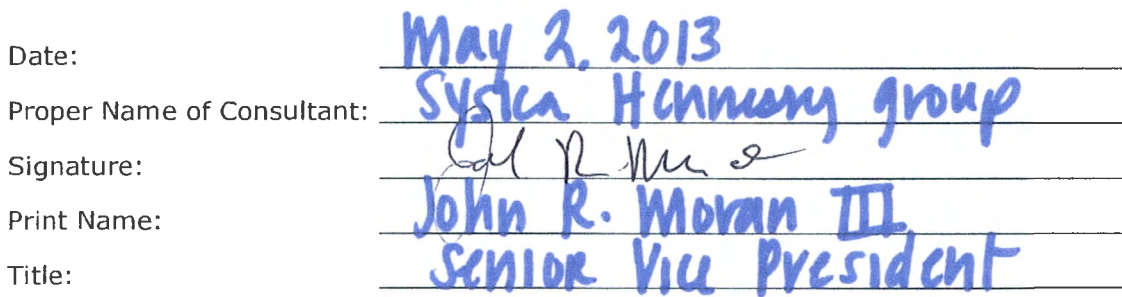 Date: May 2, 2013
Proper Name of Consultant: Syska Hennessy group
Signature:
Print Name: John R. Moran III
Title: Senior Vice President